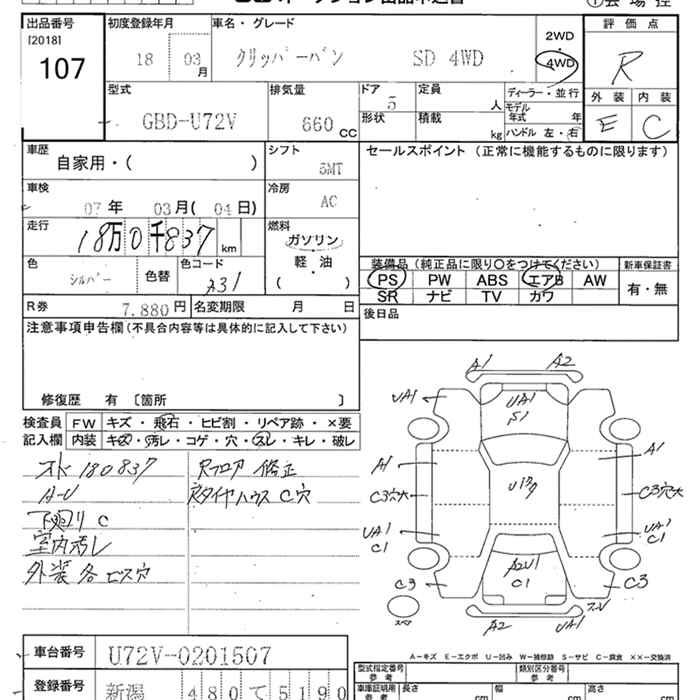 オークション出品申込書
①会場控
出品番号 [2018] 107
初度登録年月 18 03月
車名・グレード クリッパーバン SD 4WD
2WD 4WD
評価点 R
外装 E 内装 C
型式 GBD-U72V
排気量 660 CC
ドア 5 形状
定員 人 積載 kg
ディーラー・並行
モデル年式 年
ハンドル 左・右
車歴 自家用・( )
シフト 5MT
セールスポイント (正常に機能するものに限ります)
車検 07年 03月(04日)
冷房 AC
走行 18万0千837 km
燃料 ガソリン 軽・油 ( )
色 シルバー 色替 色コード A31
装備品 (純正品に限り○をつけてください) 新車保証書
PS PW ABS エアB AW 有・無
SR ナビ TV カワ
R券 7,880円 名変期限 月 日
後日品
注意事項申告欄 (不具合内容等は具体的に記入して下さい)
修復歴 有 [箇所 ]
検査員記入欄
FW キズ・飛石・ヒビ割・リペア跡・×要
内装 キズ・汚レ・コゲ・穴・スレ・キレ・破レ
メーター 180837
A-U
下廻り C
室内汚レ
外装各ビス穴
Rフロア 修正
タイヤハウス C穴
A1 A2
UA1 UA1 S1
A1 A1
C3穴大 C3穴大
UA1 C1 UA1 C1
A2U1 C1
C3 C3
A2 UA1
A-キズ E-エクボ U-凹み W-補修跡 S-サビ C-腐食 ××-交換済
車台番号 U72V-0201507
登録番号 新潟 480 て 5190
型式指定番号 参考 類別区分番号 参考
車庫証明用 参考 長さ cm 幅 cm 高さ cm